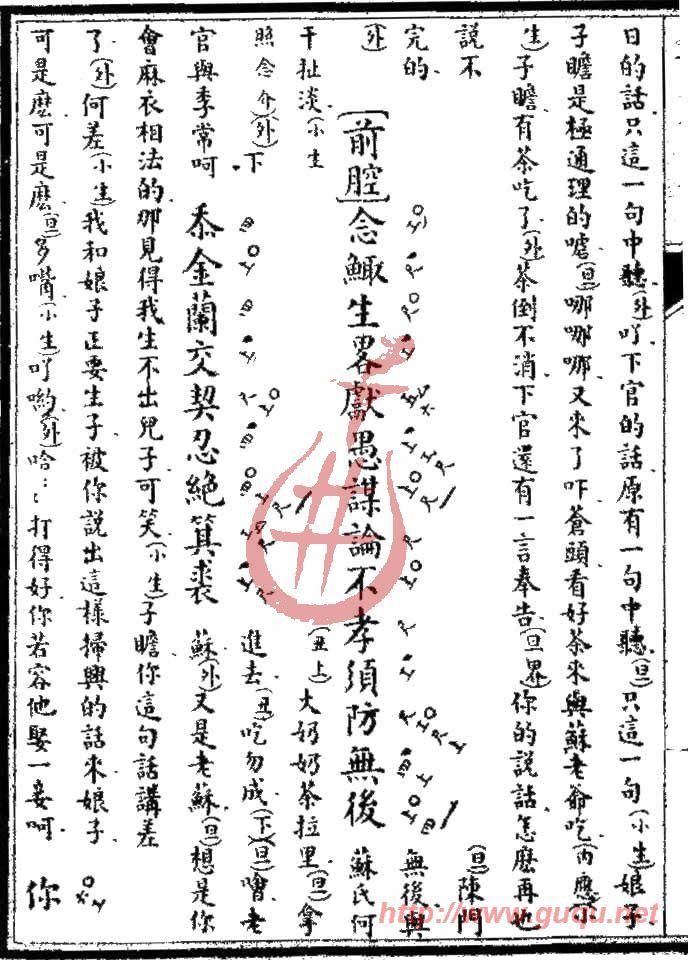 日的話只這一句中聽(外)吖下官的話原有一句中聽(旦)只這一句(小生)娘子
子瞻是極通理的噓(旦)哪哪哪又來了吓蒼頭看好茶來與蘇老爺吃(内應可
生)子瞻有茶吃了(外)茶倒不消下官還有一言奉告(旦畧)你的說話怎麽再也
說不(旦)陳門
完的無後與
(外)[前腔]念鯫生畧獻愚謀論不孝須防無後蘇氏何
干扯淡(小生(丑上)大奶奶茶拉里(旦)拿
照念介)(外)下進去(丑)吃勿成(下)(旦)噲老
官與季常呵忝金蘭交契忍絶箕裘蘇(外)又是老蘇(旦)想是你
會麻衣相法的那見得我生不出兒子可笑(小生)子瞻你這句話講差
了(外)何差(小生)我和娘子正要生子被你說出這樣掃興的話來娘子
可是麽可是麽(旦)多嘴(小生)吖喲(外)哈哈打得好你若容他娶一妾呵你
http://www.guqu.net